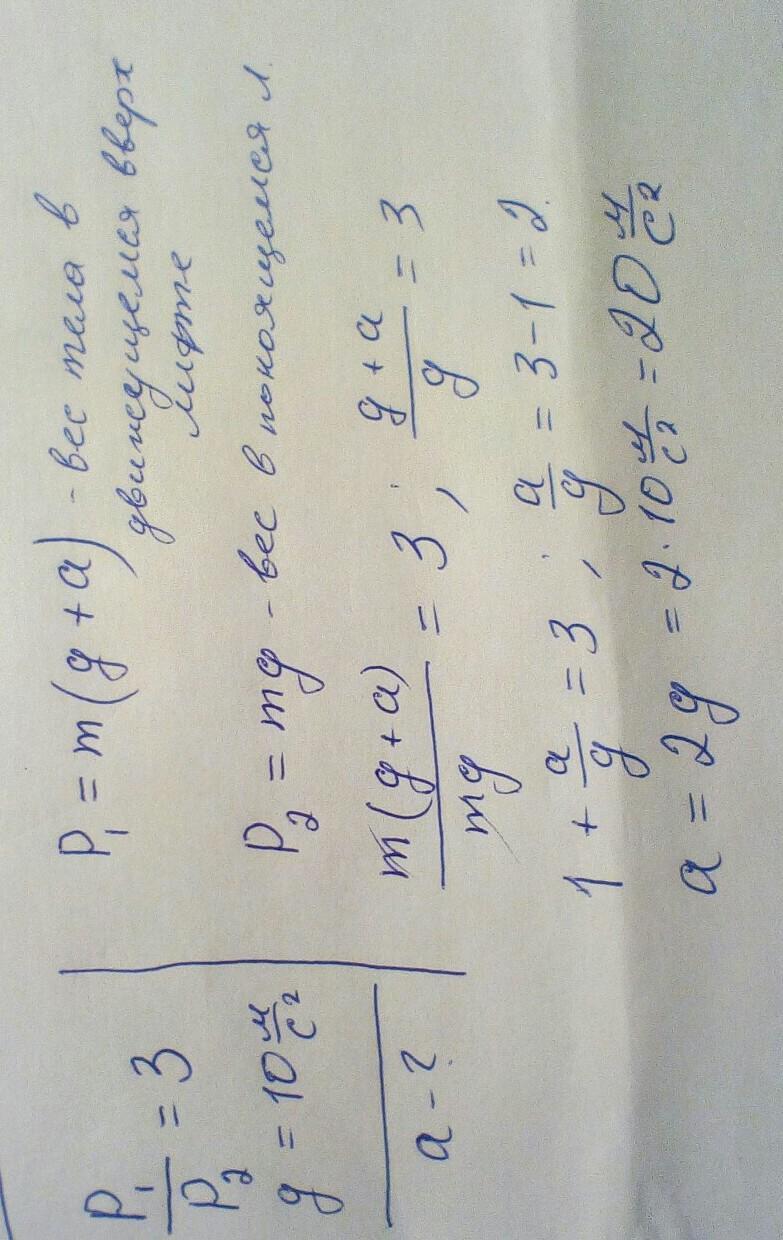 P₁/P₂ = 3
g = 10 м/с²
a - ?
P₁ = m(g + a) - вес тела в
движущемся вверх
лифте
P₂ = mg - вес в покоящемся л.
m(g + a)/mg = 3 ; (g + a)/g = 3
1 + a/g = 3 ; a/g = 3 - 1 = 2.
a = 2g = 2·10 м/с² = 20 м/с²